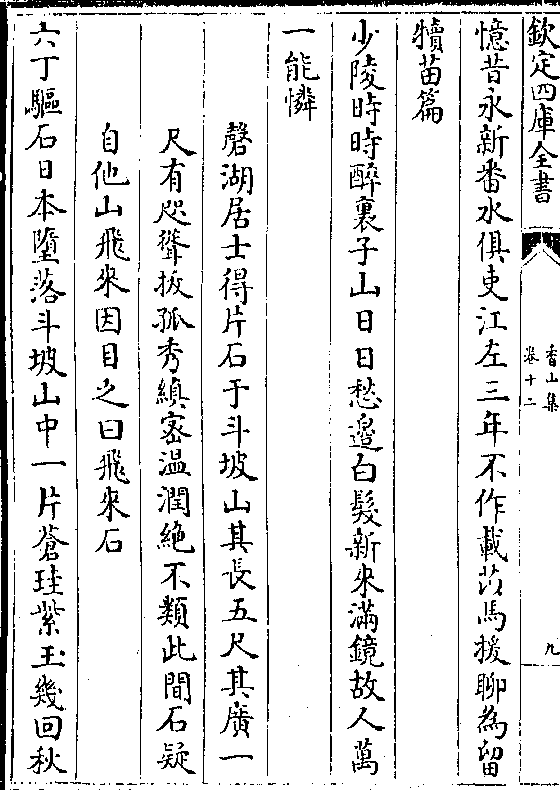 欽定四庫全書
香山集
卷十二
九
憶昔永新番水俱吏江左三年不作載苡馬援聊為留
犢苗篇
少陵時時醉裏子山日日愁邊白髮新來滿鏡故人萬
一能憐
磬湖居士得片石于斗坡山其長五尺其廣一
尺有咫聳拔孤秀縝宻温潤絶不類此間石疑
自他山飛來因目之曰飛來石
六丁驅石日本墮落斗坡山中一片蒼珪紫玉幾回秋